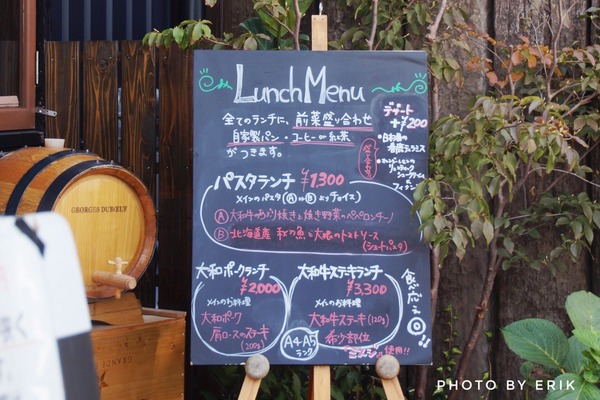 Lunch Menu
全てのランチに、前菜盛り合わせ
自家製パン・コーヒーor紅茶
がつきます。
デザート
+¥200
パスタランチ ¥1,300
メインのパスタ(ⒶorⒷよりチョイス)
Ⓐ大和牛のあぶり焼きと焼き野菜のペペロンチーノ
Ⓑ北海道産 秋の魚と大根のトマトソース
(ショートパスタ)
大和ポークランチ
¥2,000
メインのお料理
大和ポーク
肩ロースのステーキ
(200g)
大和牛ステーキランチ
¥3,300
メインのお料理
大和牛ステーキ(120g)
希少部位
"ミスジ"使用!!
A4-A5
ランク
食べ応え◎!!
GEORGES DUBŒUF
PHOTO BY ERIK